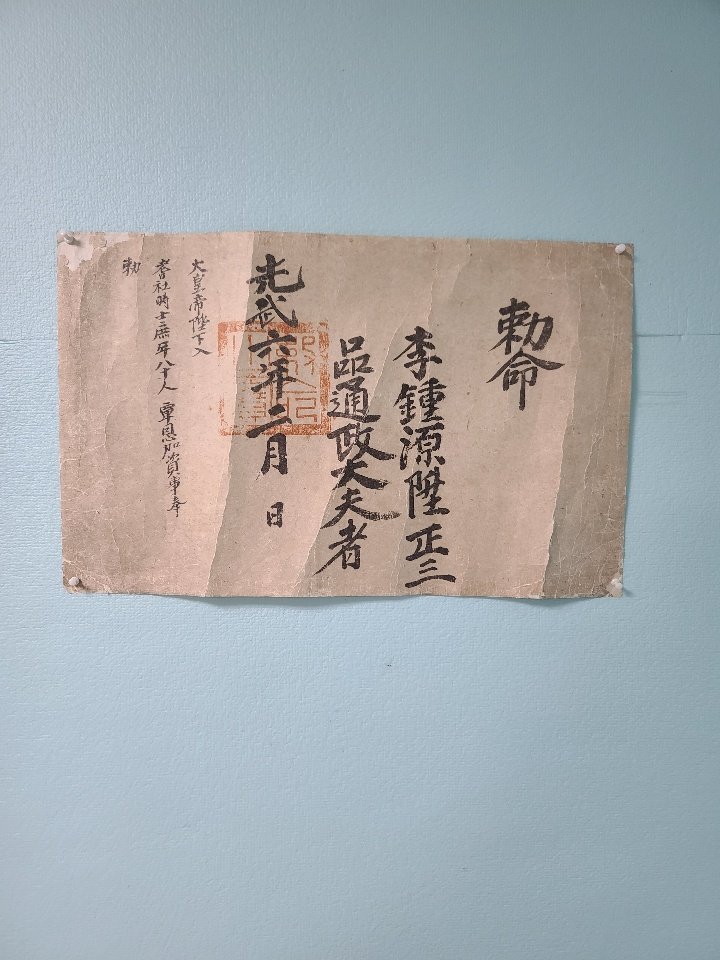 勅命
李鍾源陞正三
品通政大夫者
光武六年二月 日
大皇帝陛下入
耆社時士庶年八十人 覃恩加資事奉
勅